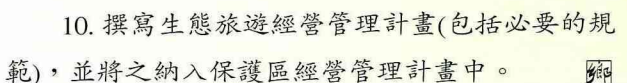 10. 撰寫生態旅遊經營管理計畫(包括必要的規
範)，並將之納入保護區經營管理計畫中。 鄉